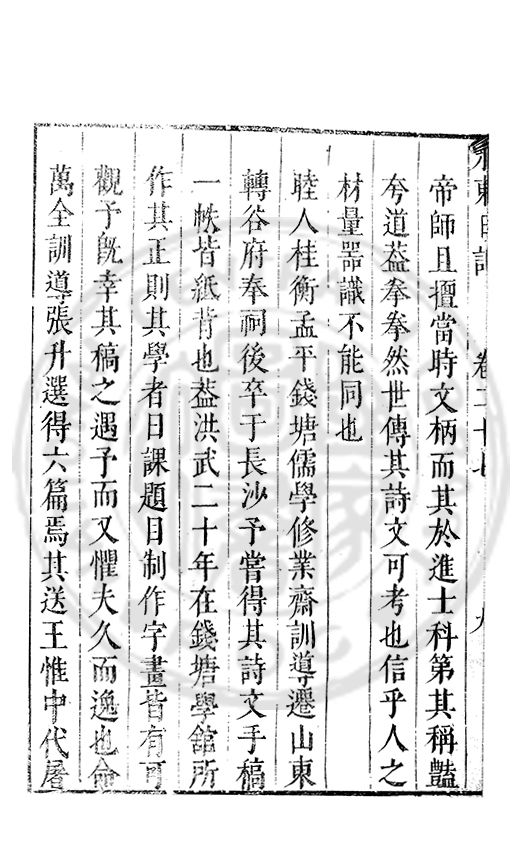 水東日記 卷二十七 九
帝師且擅當時文柄而其於進士科第其稱豔
夸道葢拳拳然世傳其詩文可考也信乎人之
材量器識不能同也
睦人桂衡孟平錢塘儒學修業齋訓導遷山東
轉谷府奉祠後卒于長沙予嘗得其詩文手稿
一帙皆紙背也葢洪武二十年在錢塘學舘所
作其正則其學者日課題目制作字畫皆有可
觀予旣幸其稿之遇予而又懼夫久而逸也命
萬全訓導張升選得六篇焉其送王惟中代屠